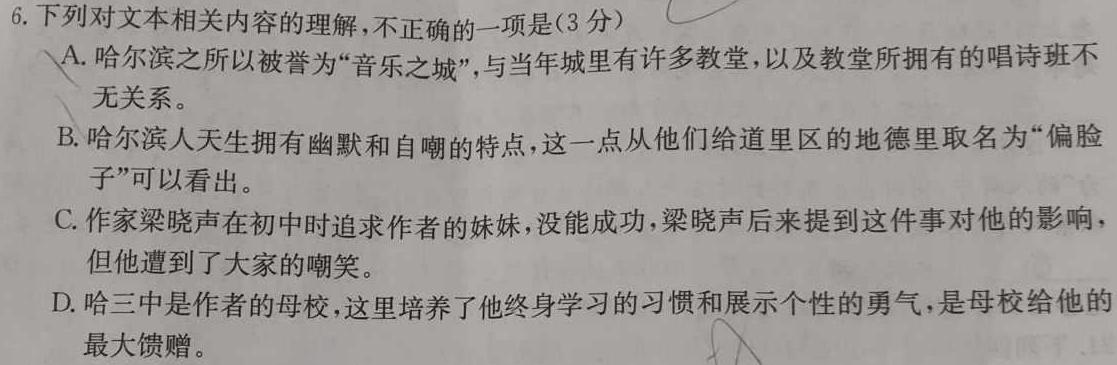 6. 下列对文本相关内容的理解,不正确的一项是(3分)
A. 哈尔滨之所以被誉为“音乐之城”,与当年城里有许多教堂,以及教堂所拥有的唱诗班不
无关系。
B. 哈尔滨人天生拥有幽默和自嘲的特点,这一点从他们给道里区的地德里取名为“偏脸
子”可以看出。
C. 作家梁晓声在初中时追求作者的妹妹,没能成功,梁晓声后来提到这件事对他的影响,
但他遭到了大家的嘲笑。
D. 哈三中是作者的母校,这里培养了他终身学习的习惯和展示个性的勇气,是母校给他的
最大馈赠。